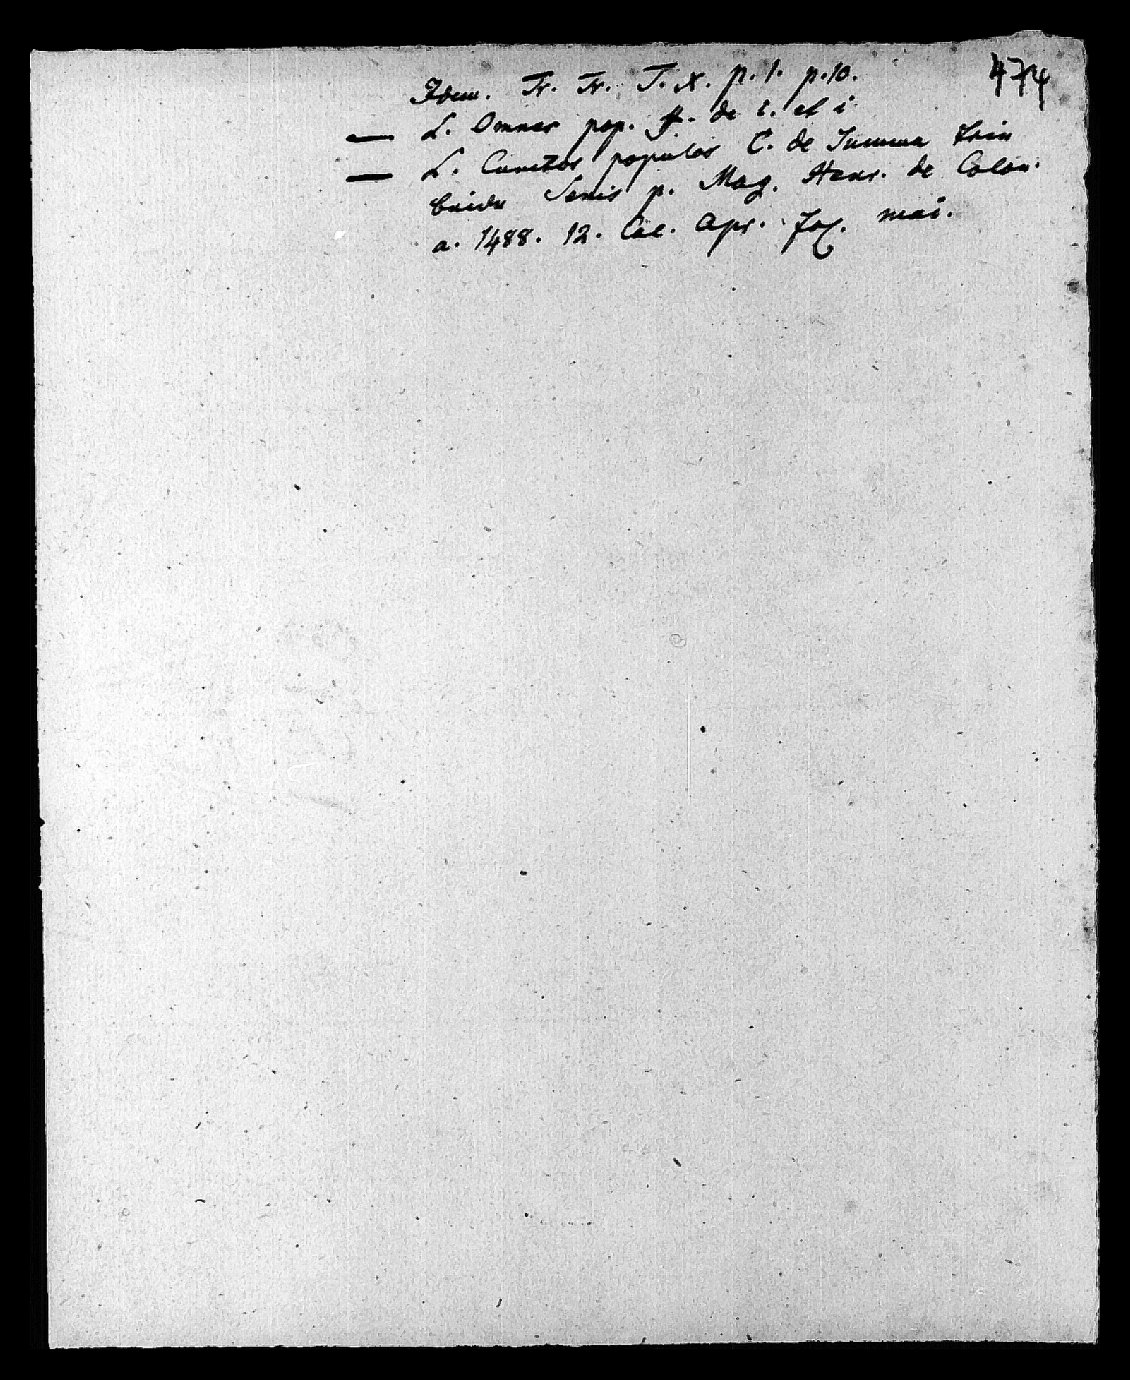 474
Idem. Tr. Tr. T. X. p. 1. p. 10.
— L. Omnes pop. ff. de i. et i
— L. Cunctos populos C. de Summa Trin
Senis p. Mag. Henr. de Colon.
a. 1488. 12. Cal. Apr. Fol. mai.